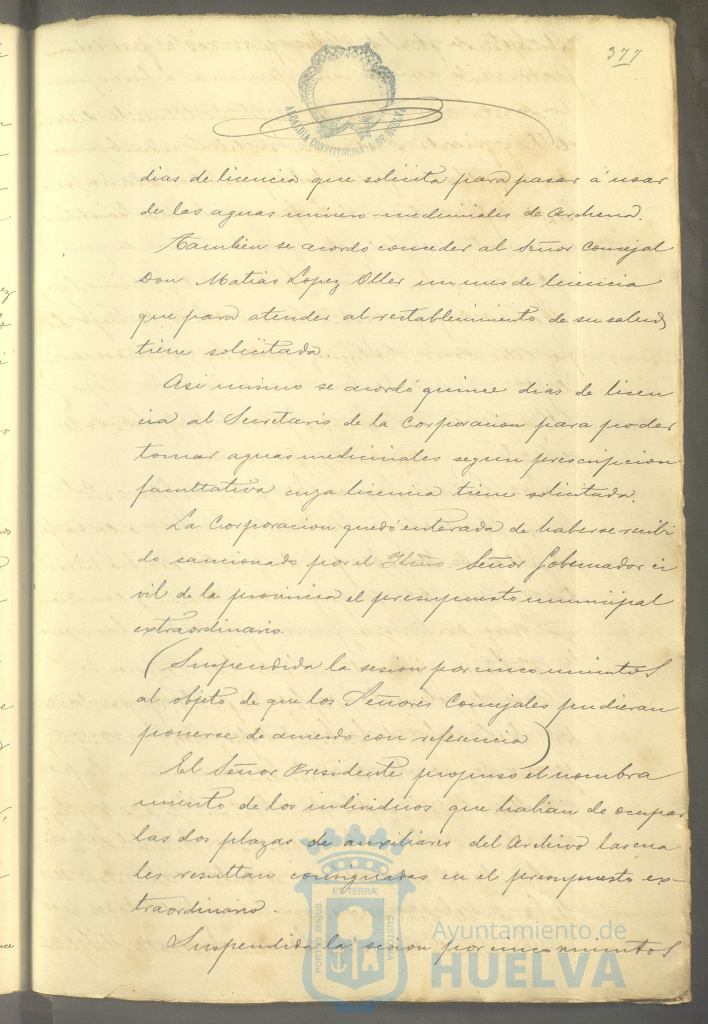 377
ALCALDIA CONSTITUCIONAL DE HUELVA
dias de licencia que solicita para pasar á usar
de las aguas minero-medicinales de Archena.
Tambien se acordó conceder al Señor Concejal
Don Matias Lopez Oller un mes de licencia
que para atender al restablecimiento de su salud
tiene solicitada.
Asi mismo se acordó quince dias de licen
cia al Secretario de la Corporacion para poder
tomar aguas medicinales segun prescripcion
facultativa cuya licencia tiene solicitada.
La Corporacion quedó enterada de haberse recibi
do sancionado por el Iltmo. Señor Gobernador ci
vil de la provincia el presupuesto municipal
extraordinario.
(Suspendida la sesion por cinco minutos
al objeto de que los Señores Concejales pudieran
ponerse de acuerdo con referencia)
El Señor Presidente propuso el nombra
miento de los individuos que habian de ocupar
las dos plazas de auxiliares del Archivo las cua
les resultan consignadas en el presupuesto ex-
traordinario.
Suspendida la sesion por cinco minutos
PORTUS MARIS ET TERRÆ CUSTODIA
Ayuntamiento de
HUELVA